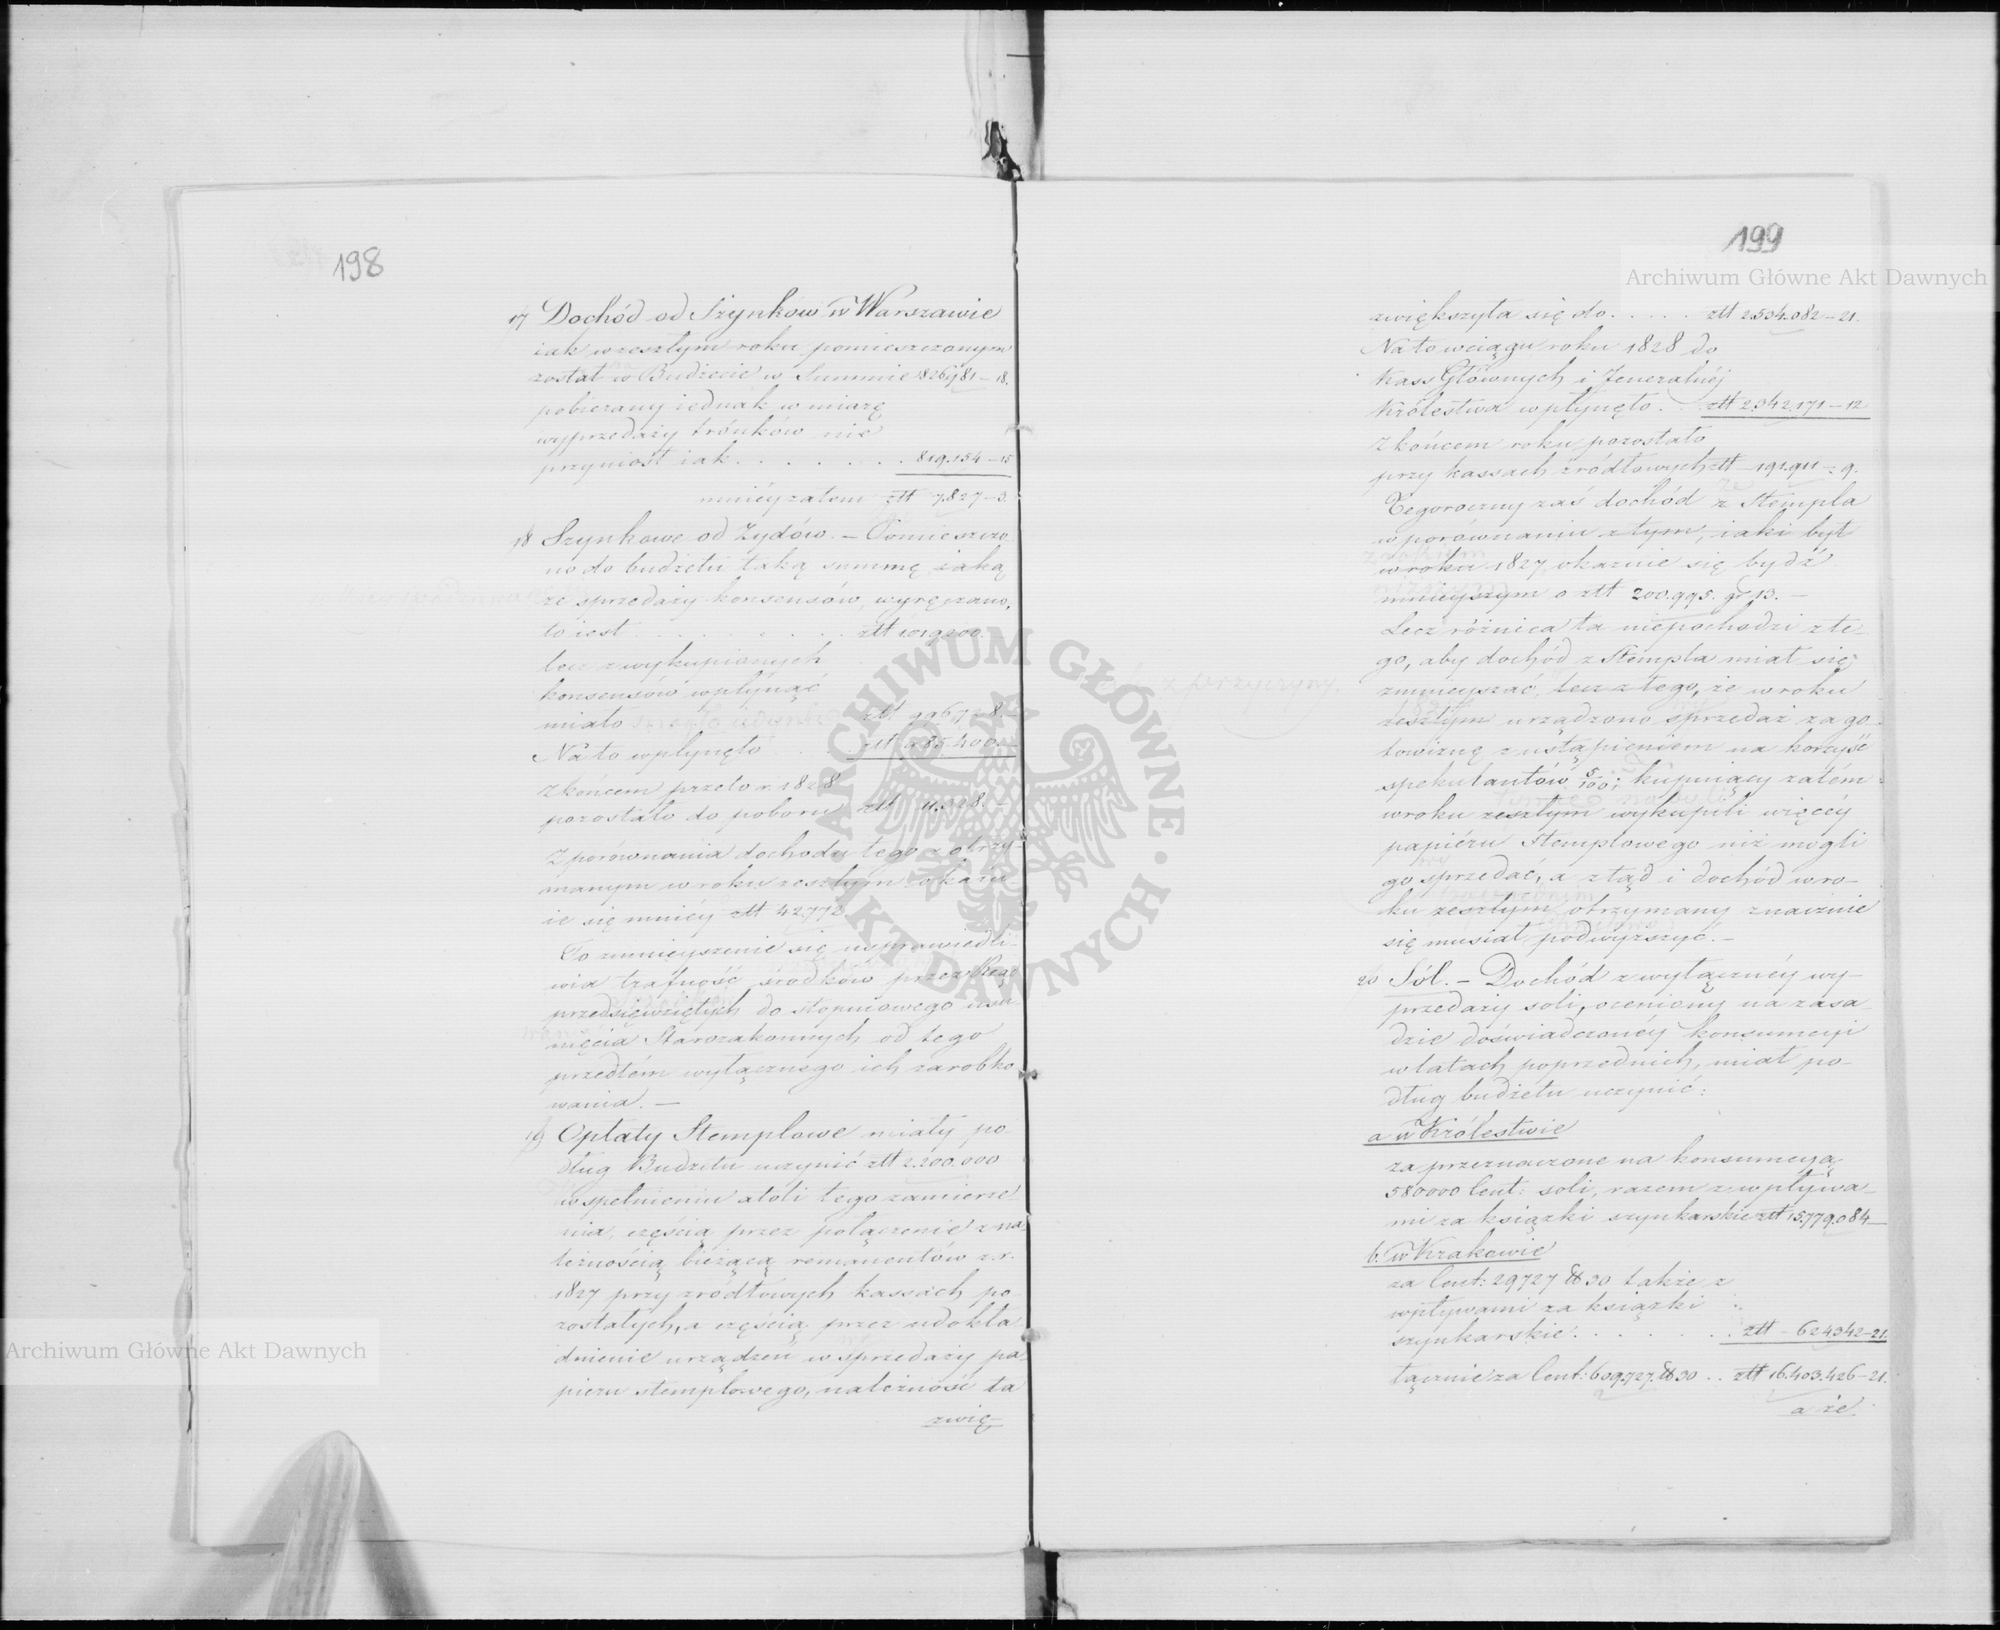 198
17 Dochód od Szynków w Warszawie
iak w zeszłym roku pomieszczonym
został w Budżecie w Summie 826981-18.
pobierany iednak w miarę
wyprzedaży trónków nie
przyniósł iak . . . . . . . 819.154-15
mniéy zatem złtt 7.827-3.
18 Szynkowe od Żydów. - Pomieszczo
no do budżetu taką summę, iaką
ze sprzedaży konsensów, wyręczano,
to iest . . . . . . złtt 1.019.200.
lecz z wykupionych
konsensów wpłynąć
miało złtt 996.728.-
Na to wpłynęło . . złtt 985.400.-
Z końcem przeto r. 1828
pozostało do poboru złtt 11.328.-
Z porównania dochodu tego z otrzy-
manym w roku zeszłym okazu-
ie się mniéy złtt 42.772.
To zmnieyszenie się usprawiedli-
wia trafność środków przez Rząd
przedsięwziętych do stopniowego usu
nięcia Starozakonnych od tego
przedtém wyłącznego ich zarobko
wania. -
19 Opłaty Stemplowe miały po
dług Budżetu uczynić złtt 2.200.000
w spełnieniu atoli tego zamierze-
nia, częścią przez połączenie z na
leżnością bieżącą remanentów z r.
1827 przy źródłowych kassach po
zostałych, a częścią przez udokła
dnienie urządzeń w sprzedaży pa-
pieru stemplowego, należność ta
zwię
199
zwiększyła się do . . . . . złtt 2.534.082-21.
Na to w ciągu roku 1828 do
Kass Głównych i Jeneralnéj
Królestwa wpłynęło . . złtt 2.342.171-12
Z końcem roku pozostało
przy kassach źródłowych złtt 191.911-9.
Tegoroczny zaś dochód z Stempla
w porównaniu z tym, iaki był
w roku 1827, okazuie się bydź
mnieyszym o złtt 200.995. gr 13. -
Lecz różnica ta niepochodzi z te-
go, aby dochód z Stempla miał się
zmnieyszać, lecz z tego, że w roku
zeszłym urządzono sprzedaż za go-
towiznę z ustąpieniem na korzyść
spekulantów 5/100; kupuiący zatém
w roku zeszłym wykupili więcéy
papiéru Stemplowego niż mogli
go sprzedać, a ztąd i dochód w ro-
ku zeszłym otrzymany znacznie
się musiał podwyższyć. -
z przyczyny.
20 Sól. - Dochód z wyłącznéy wy-
przedaży soli, oceniony na zasa-
dzie doświadczonéy konsumcyi
w latach poprzednich, miał po-
dług budżetu uczynić:
a w Królestwie
za przeznaczone na konsumcyą
580000 Cent: soli, razem z wpływa-
mi za książki szynkarskie złtt 15.779.084-
b. w Krakowie
za Cent: 29727 ℔ 30 także z
wpływami za książki
szynkarskie . . . . . . . złtt - 624342-21
łącznie za Cent: 609.727. ℔ 30 . . złtt 16.403.426-21.
a że
Archiwum Główne Akt Dawnych
Archiwum Główne Akt Dawnych
ARCHIWUM GŁÓWNE · AKT DAWNYCH ·